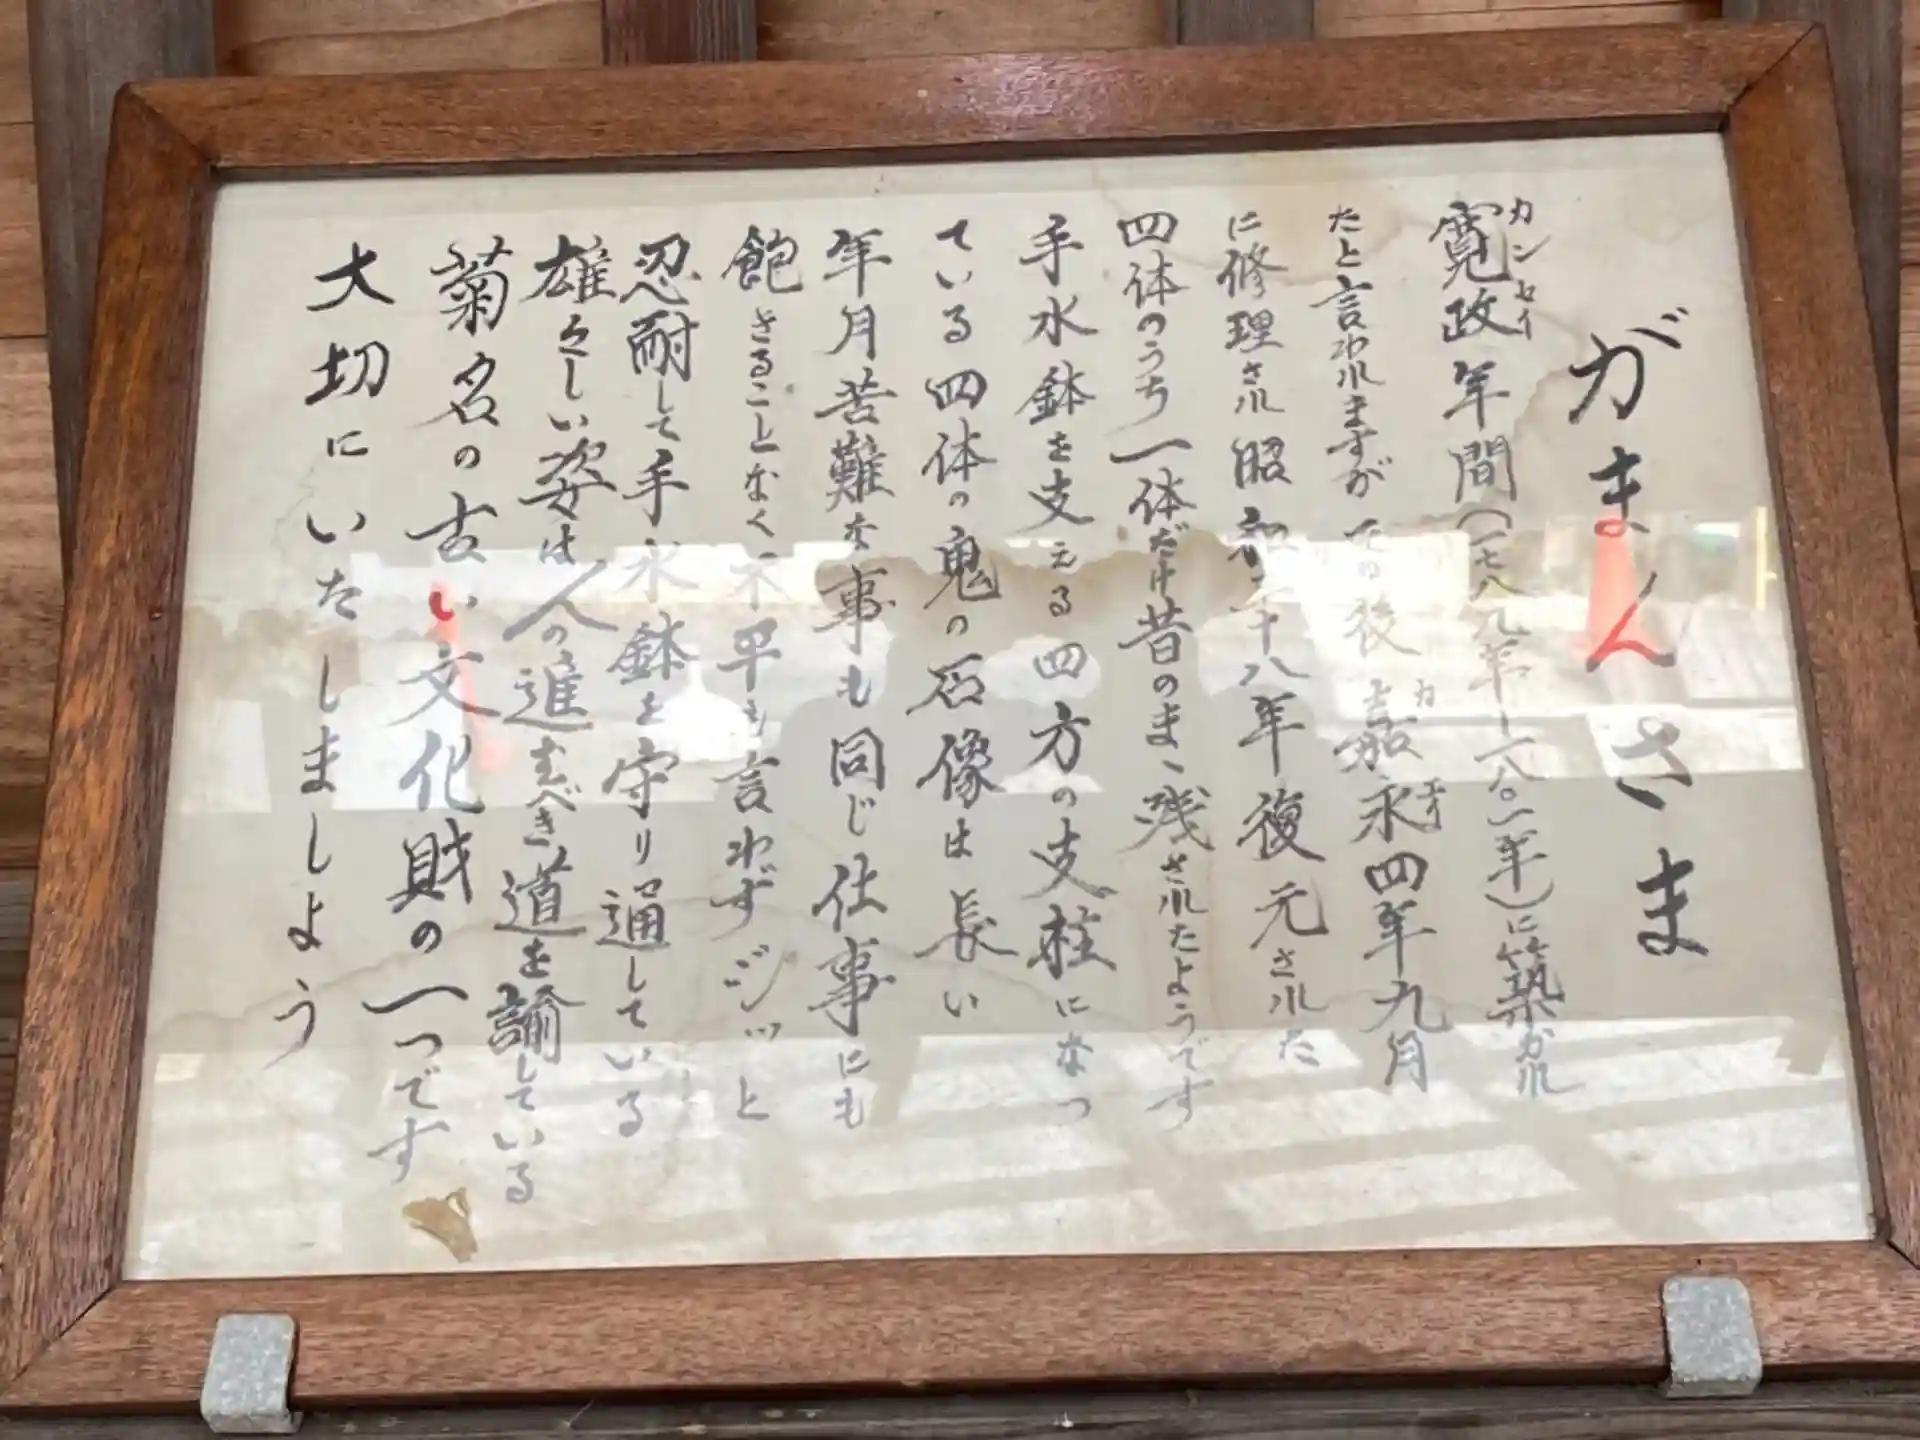 がまんさま
寛政年間(一七八九年―一八〇一年)に築かれ
カンセイ
たと言われますが その後 嘉永四年九月
カエイ
に修理され昭和二十八年復元された
四体のうち一体だけ昔のまゝ残されたようです
手水鉢を支える四方の支柱になっ
ている四体の鬼の石像は長い
年月苦難な事も同じ仕事にも
飽きることなく不平も言わずジッと
忍耐して手水鉢を守り通している
雄々しい姿は人の進むべき道を諭している
菊名の古い文化財の一つです
大切にいたしましよう